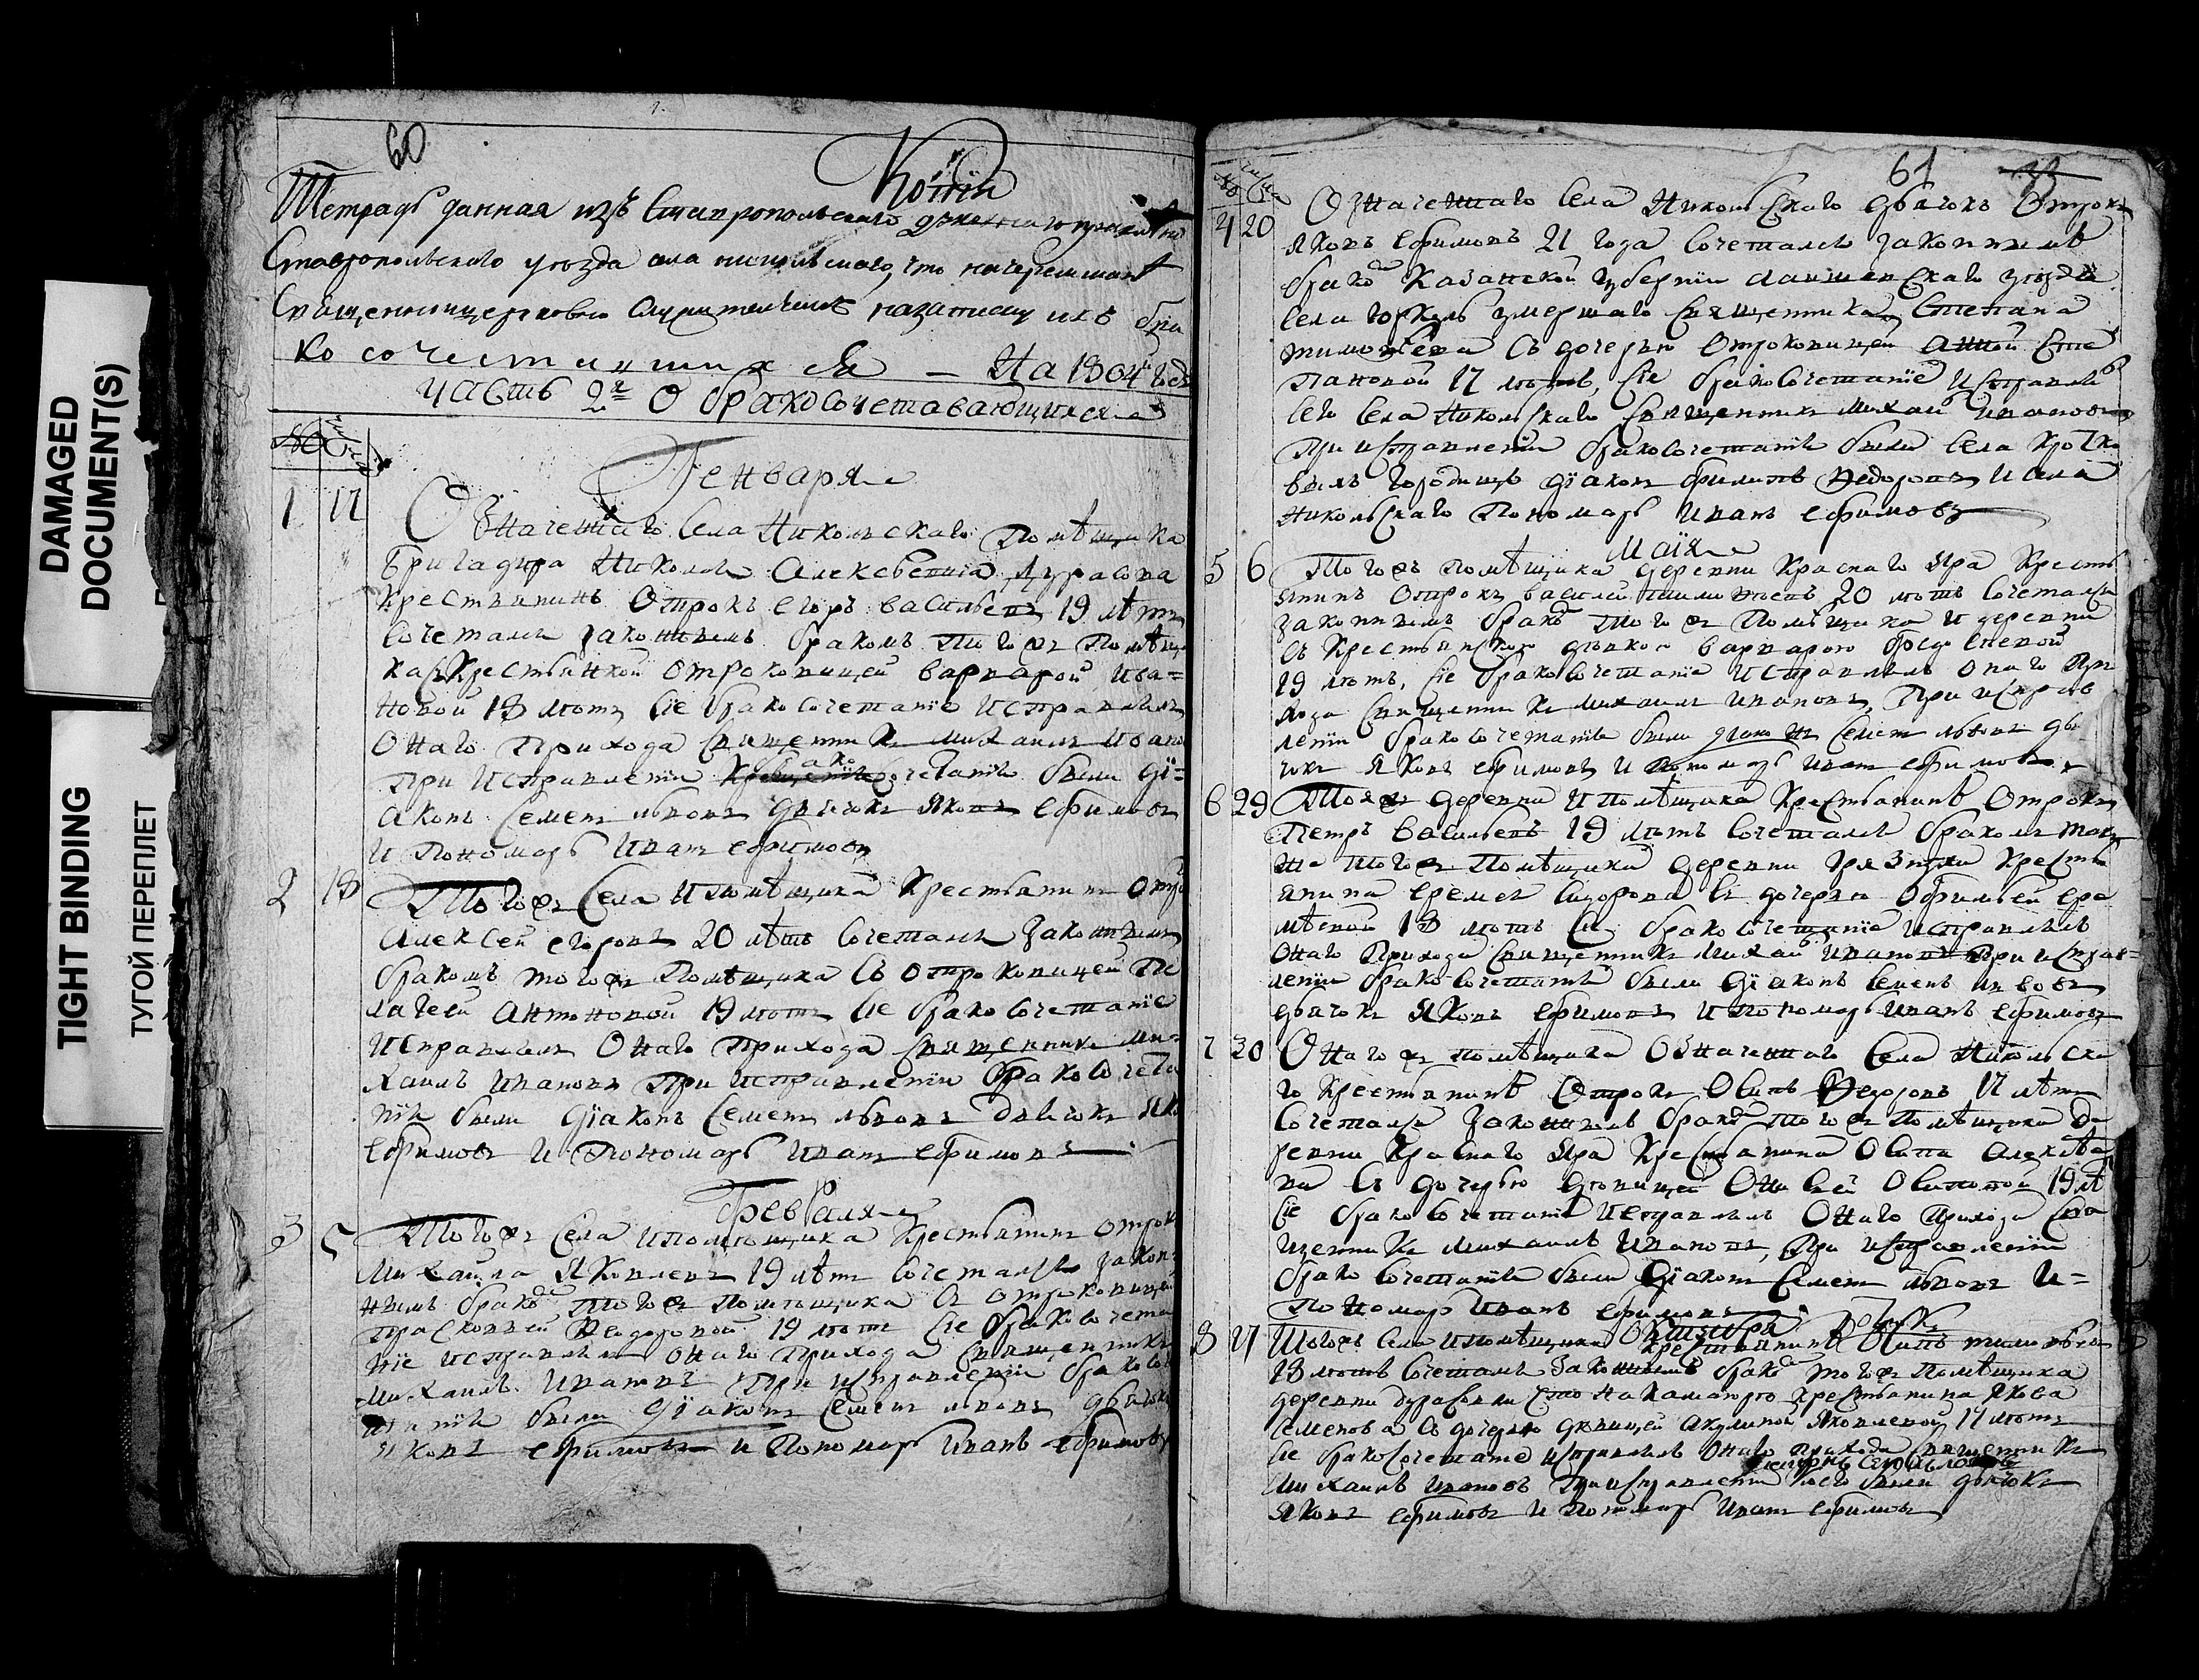 DAMAGED
DOCUMENT(S)
TIGHT BINDING
ТУГОЙ ПЕРЕПЛЕТ
60
Копїя
Тетрадь данная изъ Ставропольскаго духовнаго правленія
Ставропольскаго уезда села никольскаго,
Священноцерковно служителямъ назаписку ихъ бра
ко сочетавшихся — На 1804 годъ
часть 2я О бракосочетавающихся
№ числа
Генваря
1 17
Означеннаго Села Никольскаго Помѣщика
Бригадира Николая Алексѣевича Дурасова
крестьянинъ Отрокъ егоръ васильевъ 19 лѣтъ
Сочетался законнымъ бракомъ того жъ Помѣщи
ка съ Крестьянкой отроковицей варварой ива=
новой 18 лѣтъ сіе бракосочетанїе исправлялъ
Онаго Прихода священникъ михаилъ ивано
При исправленїи бракосочетанїя были дї=
аконъ Семенъ львовъ дьячокъ яковъ ефимовъ
и Пономарь иванъ ефимовъ
2 18
Того жъ Села и помѣщика крестьянинъ отро
Алексей егоровъ 20 лѣтъ сочетался законнымъ
бракомъ того жъ Помѣщика съ отроковицей Пе
лагеей Антоновой 19 лѣтъ сіе бракосочетанїе
исправлялъ Онаго Прихода священникъ ми=
хаилъ ивановъ При исправленїи бракосочета
нїя были дїаконъ Семенъ львовъ дьячокъ яко
ефимовъ и Пономарь иванъ ефимовъ
Февраля
3 5
Того жъ Села и помѣщика крестьянинъ отрок
Михайла Яковлевъ 19 лѣтъ сочетался закон
нымъ бракомъ того жъ Помѣщика съ отроковицей
Прасковьей Федоровой 19 лѣтъ сіе бракосочета
нїе исправлялъ онаго прихода священникъ
михаилъ ивановъ При исправленїи бракосоч
танїя были дїаконъ Семенъ львовъ дьячокъ
яковъ ефимовъ и Пономарь иванъ ефимовъ
61
№ числа
4 20
Означеннаго Села Никольскаго дьячокъ Отрокъ
яковъ ефимовъ 21 года Сочетался законнымъ
бракомъ Казанской губернїи лаишевскаго уезда
Села умершаго священника Степана
тимофеева съ дочерью Отроковицей анной Сте
пановой 17 лѣтъ, сіе бракосочетанїе исправлялъ
сего Села Никольскаго священникъ михаилъ ивановъ
При исправленїи бракосочетанїя были Села
Городищъ дїаконъ филипъ Федоровъ и села
никольскаго Пономарь иванъ ефимовъ
маїя
5 6
Того жъ помѣщика деревни Краснаго Яра кресть
янинъ Отрокъ василей 20 лѣтъ Сочетался
законнымъ бракомъ того жъ Помѣщика и деревни
съ Крестьянской девкой варварою
19 лѣтъ, сіе бракосочетанїе исправлялъ онаго при
хода священникъ михаилъ ивановъ, При исправ
ленїи бракосочетанїя были дїаконъ Семенъ львовъ дья
чокъ яковъ ефимовъ и пономарь иванъ ефимовъ
6 29
Тоя жъ деревни и Помѣщика крестьянинъ Отрокъ
Петръ васильевъ 19 лѣтъ сочетался бракомъ так
же того жъ Помѣщика деревни Грязнухи кресть
янина еремея Сидорова съ дочерью Офимьей ере
мѣевой 18 лѣтъ сіе бракосочетанїе исправлялъ
Онаго Прихода священникъ михаилъ ивановъ При исправ=
ленїи бракосочетанїя были дїаконъ Семенъ львовъ
дьячокъ яковъ ефимовъ и Пономарь иванъ ефимовъ
7 30
Онаго жъ помѣщика Означеннаго Села Никольска
го Крестьянинъ Отрокъ Осипъ Федоровъ 17 лѣтъ
Сочетался законнымъ бракомъ того жъ Помѣщика де
ревни Краснаго Яра крестьянина Осипа Алексѣе
ва съ дочерью девицей Осиповой 19 лѣ
сіе бракосочетанїе исправлялъ Онаго Прихода свя
щенникъ михаилъ ивановъ, При исправленїи
бракосочетанїя были дїаконъ Семенъ львовъ и=
Пономарь иванъ ефимовъ
Октября
8 27
Того жъ Села и помѣщика крестьянинъ Осипъ
18 лѣтъ Сочетался Законнымъ бракомъ того жъ Помѣщика
деревни дурасовки крестьянина якова
Семенова съ дочерью девицей акулиной яковлевой 17 лѣтъ
сіе бракосочетанїе исправлялъ Онаго прихода священникъ
михаилъ ивановъ При исправленїи сего были дьячокъ
яковъ ефимовъ и Пономарь иванъ ефимовъ